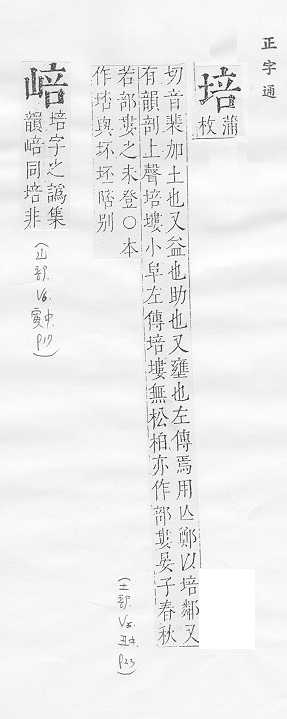 正字通
培
蒲枚
切音裴加土也又益也助也又壅也左傳焉用亾鄭以培鄰又
有韻剖上聲培塿小阜左傳培塿無松柏亦作部婁晏子春秋
若部婁之未登○本
作培與坏坯陪别
(土部. V5. 丑中. P23)
㟝
培字之譌集
韻㟝同培非
(山部. V6. 寅中. P17)